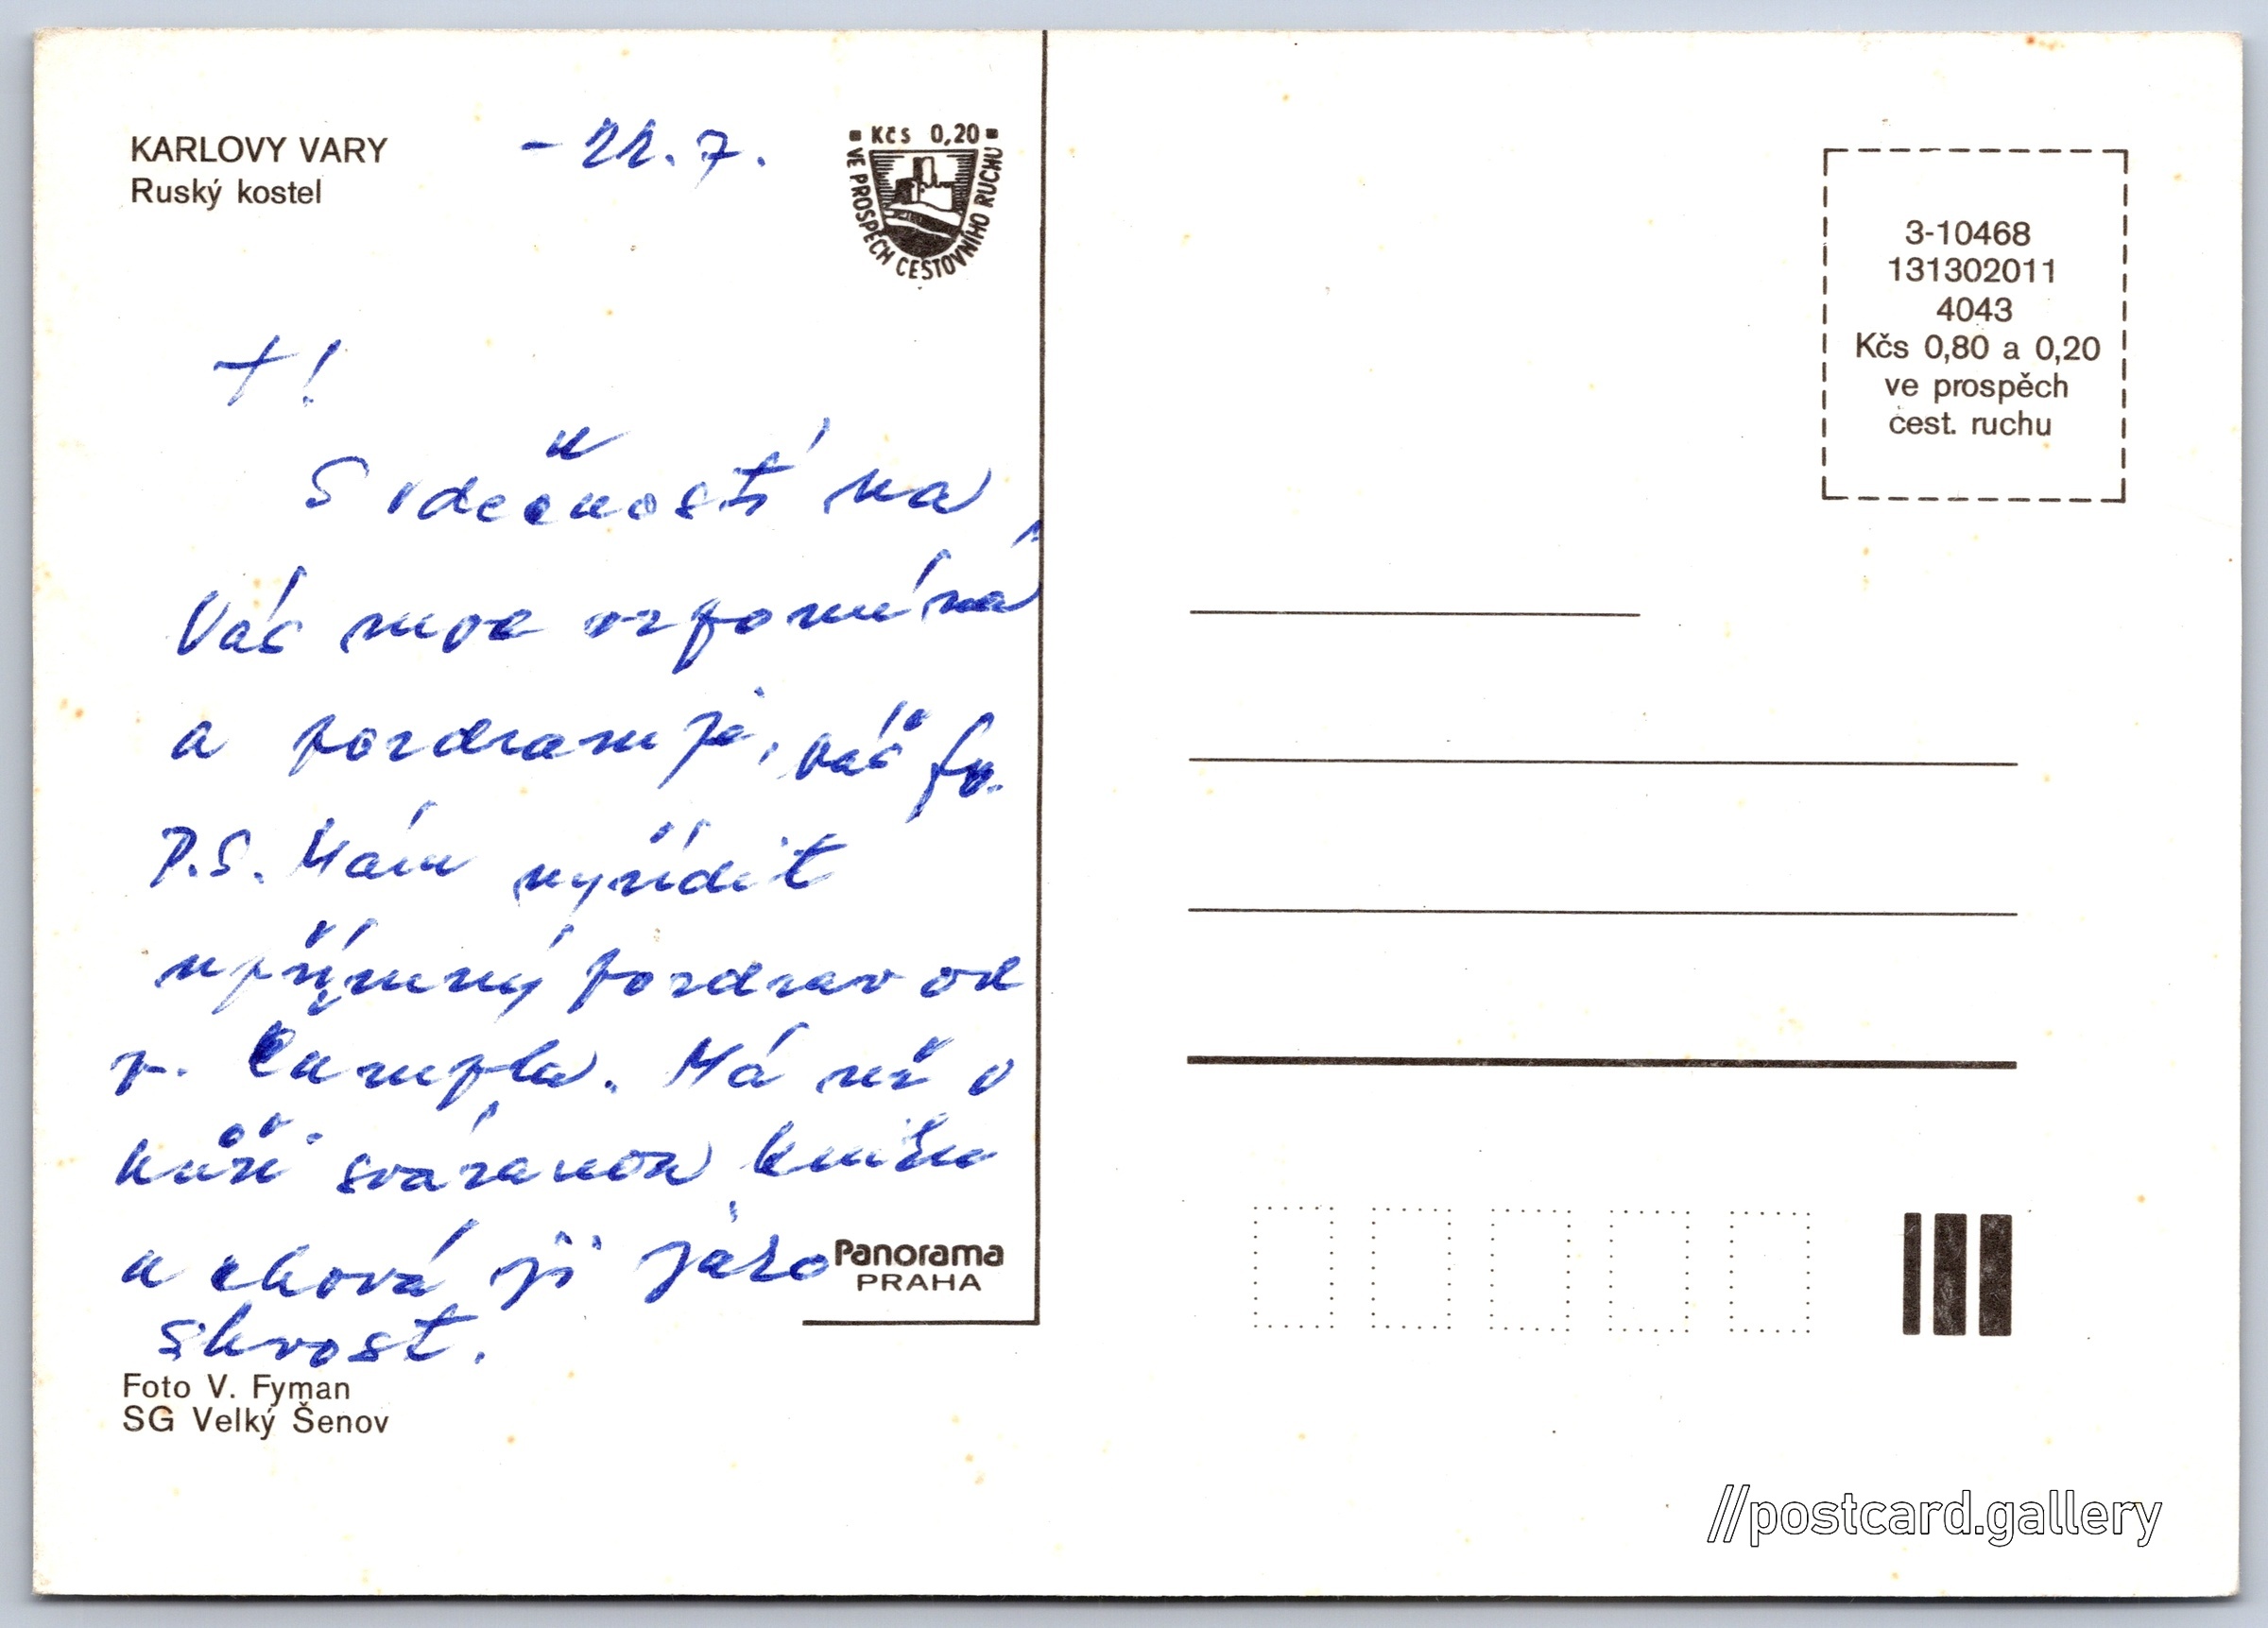 KARLOVY VARY
Ruský kostel
- 22. 7.
Kčs 0,20
VE PROSPĚCH CESTOVNÍHO RUCHU
+!
S vděčností na
Vás moc vzpomíná
a pozdravuje, váš
P.S. Mám vyřídit
upřímný pozdrav od
p. Má už v
kůži svázanou knihu
a chová ji jako
skvost.
Panorama
PRAHA
Foto V. Fyman
SG Velký Šenov
3-10468
131302011
4043
Kčs 0,80 a 0,20
ve prospěch
cest. ruchu
//postcard.gallery